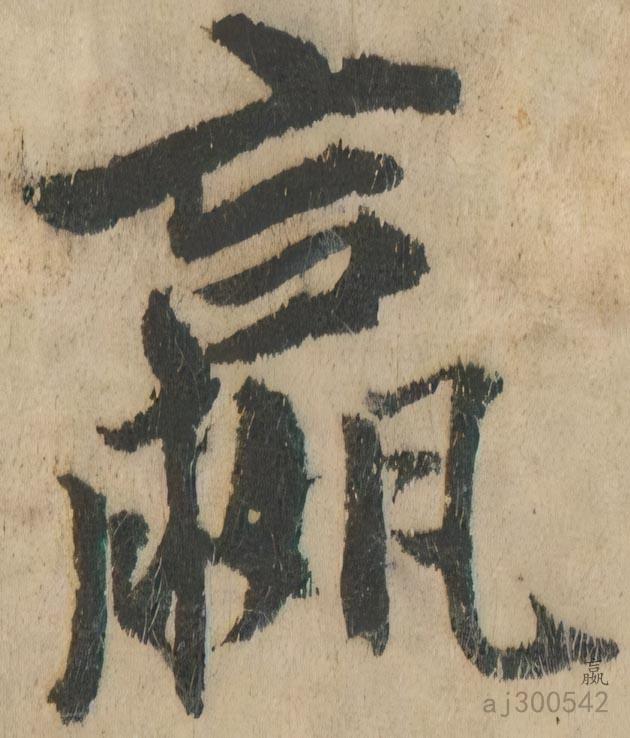 嬴
嬴
aj300542